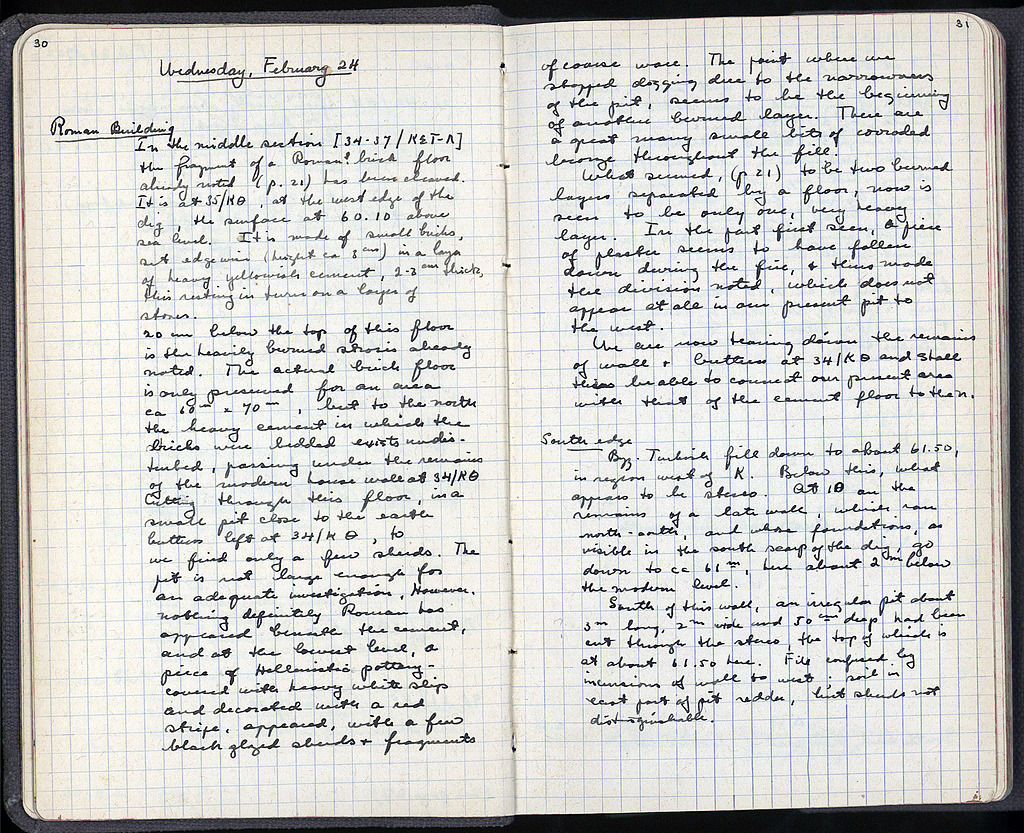 30
Wednesday, February 24
Roman Building
In the middle section [34-37/ΚΕΤ-Λ]
the fragment of a Roman? brick floor
already noted (p. 21) has been cleared.
It is at 35/ΚΘ, at the west edge of the
dig, the surface at 60.10 above
sea level. It is made of small bricks,
set edgewise (height ca 8 cm) in a layer
of heavy yellowish cement, 2-3 cm thick,
this resting in turn on a layer of
stones.
20 cm below the top of this floor
is the heavily burned strosis already
noted. The actual brick floor
is only preserved for an area
ca 60 m x 70 m, but to the north
the heavy cement in which the
bricks were bedded exists undis-
turbed, passing under the remains
of the modern house wall at 34/ΚΘ
Cutting through this floor, in a
small pit close to the earth
buttress left at 34/ΚΘ, to
we find only a few sherds. The
pit is not large enough for
an adequate investigation, However,
nothing definitely Roman has
appeared beneath the cement,
and at the lowest level, a
piece of Hellenistic pottery -
covered with heavy white slip
and decorated with a red
stripe, appeared, with a few
black glazed sherds + fragments
31
of coarse ware. The point where we
stopped digging due to the narrowness
of the pit, seems to be the beginning
of another burned layer. There are
a great many small bits of corroded
bronze throughout the fill.
What seemed, (p 21) to be two burned
layers separated by a floor, now is
seen to be only one, very heavy
layer. In the part first seen, a piece
of plaster seems to have fallen
down during the fire, & thus made
the division noted, which does not
appear at all in our present pit to
the west.
We are now tearing down the remains
of wall + buttress at 34/ΚΘ and shall
thus be able to connect our present area
with that of the cement floor to the n.
South edge
Byz. Turkish fill down to about 61.50,
in region west of K. Below this, what
appears to be stereo. At ΙΘ are the
remains of a late wall, which ran
north-south, and whose foundations, as
visible in the south scarp of the dig, go
down to ca 61 m, here about 2 m below
the modern level.
South of this wall, an irregular pit about
3 m long, 2 m wide and 50 cm deep had been
cut through the stereo, the top of which is
at about 61.50 here. Fill confused by
incursions of wall to west; soil in
east part of pit redder, but sherds not
distinguishable.